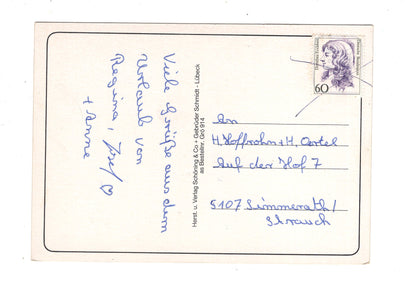 Viele Grüße aus dem
Urlaub von
Regina, Josef
+ Anne
Herst. u. Verlag Schöning & Co • Gebrüder Schmidt - Lübeck
as Bestellnr. Grö 914
60
An
H. Hoffrohn + H. Oertel
Auf der Hof 7
5107 Simmerath/
Strauch